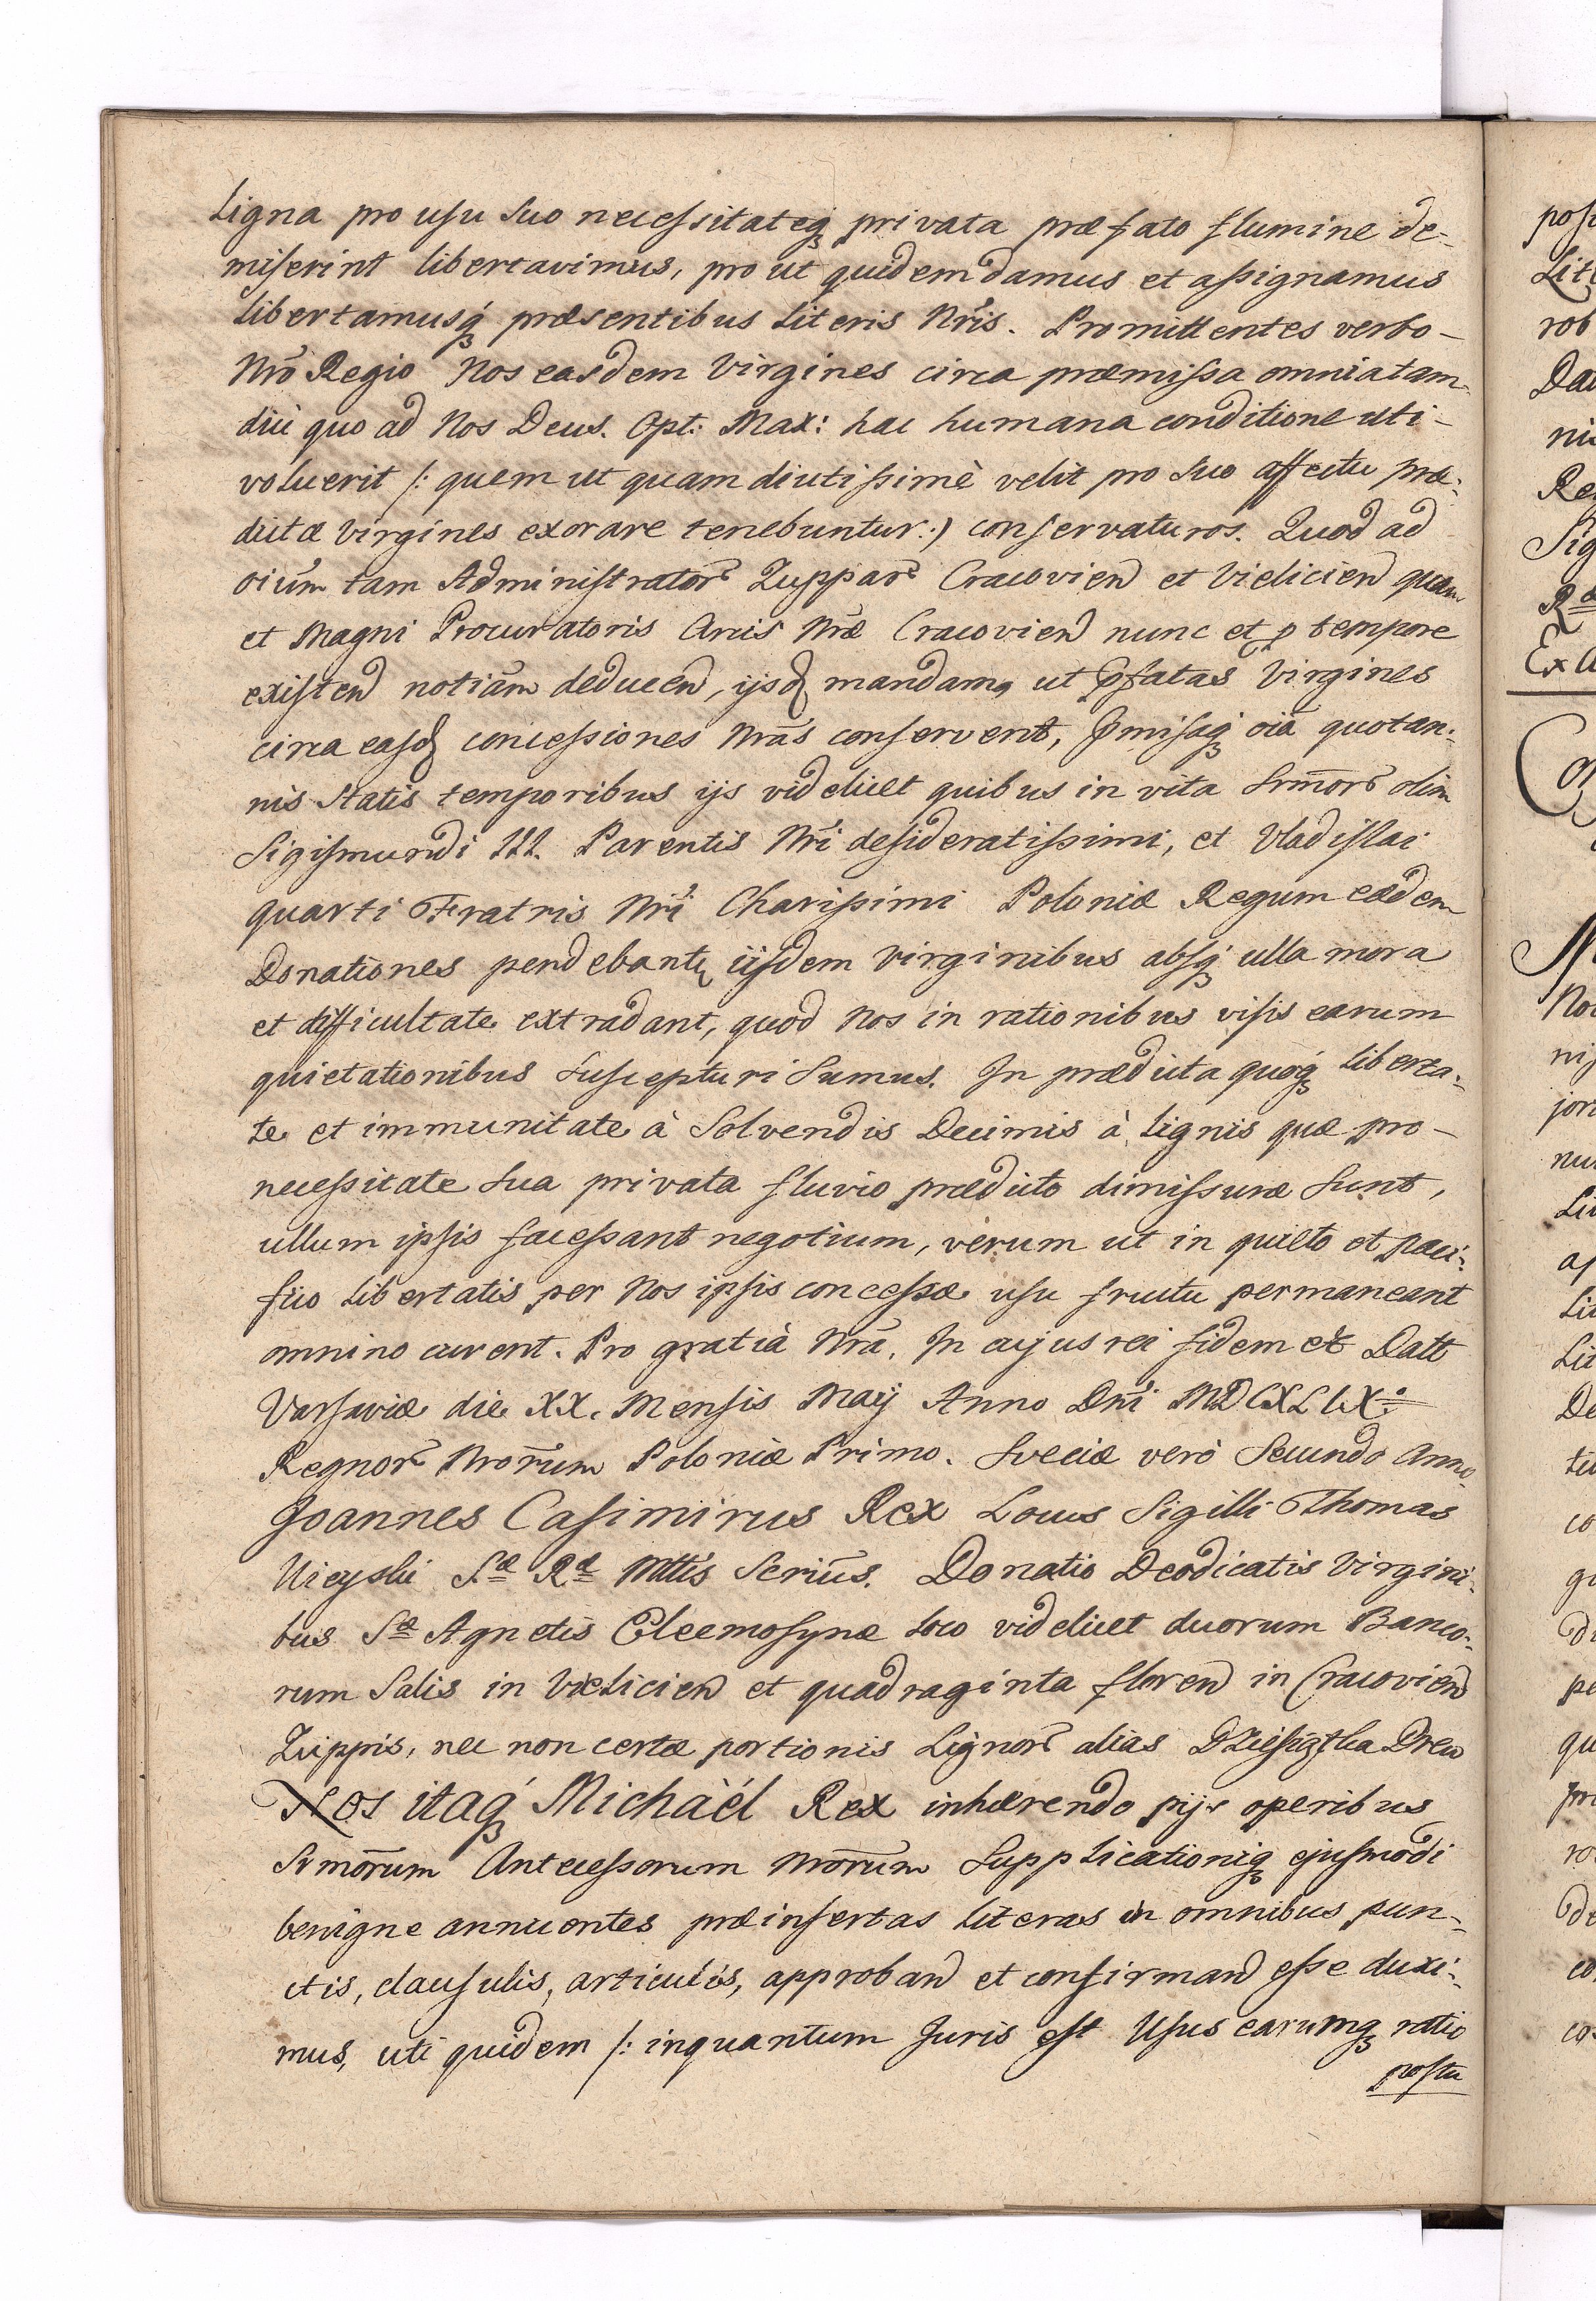 Ligna pro usu suo necessitateq₃ privata præfato flumine de-
miserint libertavimus, prout quidem damus et assignamus
libertamusq₃ præsentibus Literis Nris. Promittentes verbo-
Nrō Regio Nos easdem Virgines circa præmissa omnia tam-
diù quo ad Nos Deus. Opt: Max: hac humana conditione uti-
voluerit /: quem ut quam diutissimè velit pro suo affectu præ-
dictæ Virgines exorare tenebuntur :) conservaturos. Quod ad
oium tam Administrator Zuppar Cracovien et Vielicien quam
et Magni Procuratoris Arcis Nræ Cracovien nunc et p tempore
existen notiām deducen, ijsd mandamq ut pfatas Virgines
circa easd concessiones Nrās conservent, Pmisaq₃ oiā quotan-
nis statis temporibus ijs videlicet quibus in vita Srmor olim
Sigismundi III. Parentis Nri desideratissimi, et Vladislai
quarti Fratris Nri Charissimi Poloniæ Regum eædem
Donationes pendebant iisdem Virginibus absq₃ ulla mora
et difficultate extradant, quod Nos in rationibus visis earum
quietationibus suscepturi sumus. In prædicta quoq₃ liberta-
te et immunitate à Solvendis Decimis à Lignis quæ pro-
necessitate sua privata fluvio prædicto dimissuræ sunt,
ullum ipsis facessant negotium, verum ut in quieto et paci-
fico libertatis per Nos ipsis concessæ usu fructu permaneant
omnino curent. Pro gratià Nrā. In cujus rei fidem et Datt
Varsaviæ die XX. Mensis Maij Anno Dni MDCXLIX⁰
Regnor Nrorum Poloniæ Primo. Sveciæ verò Secundo Anno
Joannes Casimirus Rex Locus Sigilli Thomas
Uieyski Sæ Ræ Mttis Secrius. Donatio Deodicatis Virgini-
bus Sæ Agnetis Eleemosynæ loco videlicet duorum Banco-
rum Salis in Vielicien et quadraginta floren in Cracovien
Zuppis, nec non certæ portionis Lignor alias Dziesiątka Drew
Nos itaq₃ Michaèl Rex inhærendo pijs operibus
Srmorum Antecessorum Nrorum Supplicationiq₃ ejusmodi
benigne annuentes præinsertas literas in omnibus pun-
ctis, clausulis, articulis, approban et confirman esse duxi-
mus, uti quidem /: inquantum Juris est Usus earumq₃ ratio
postu